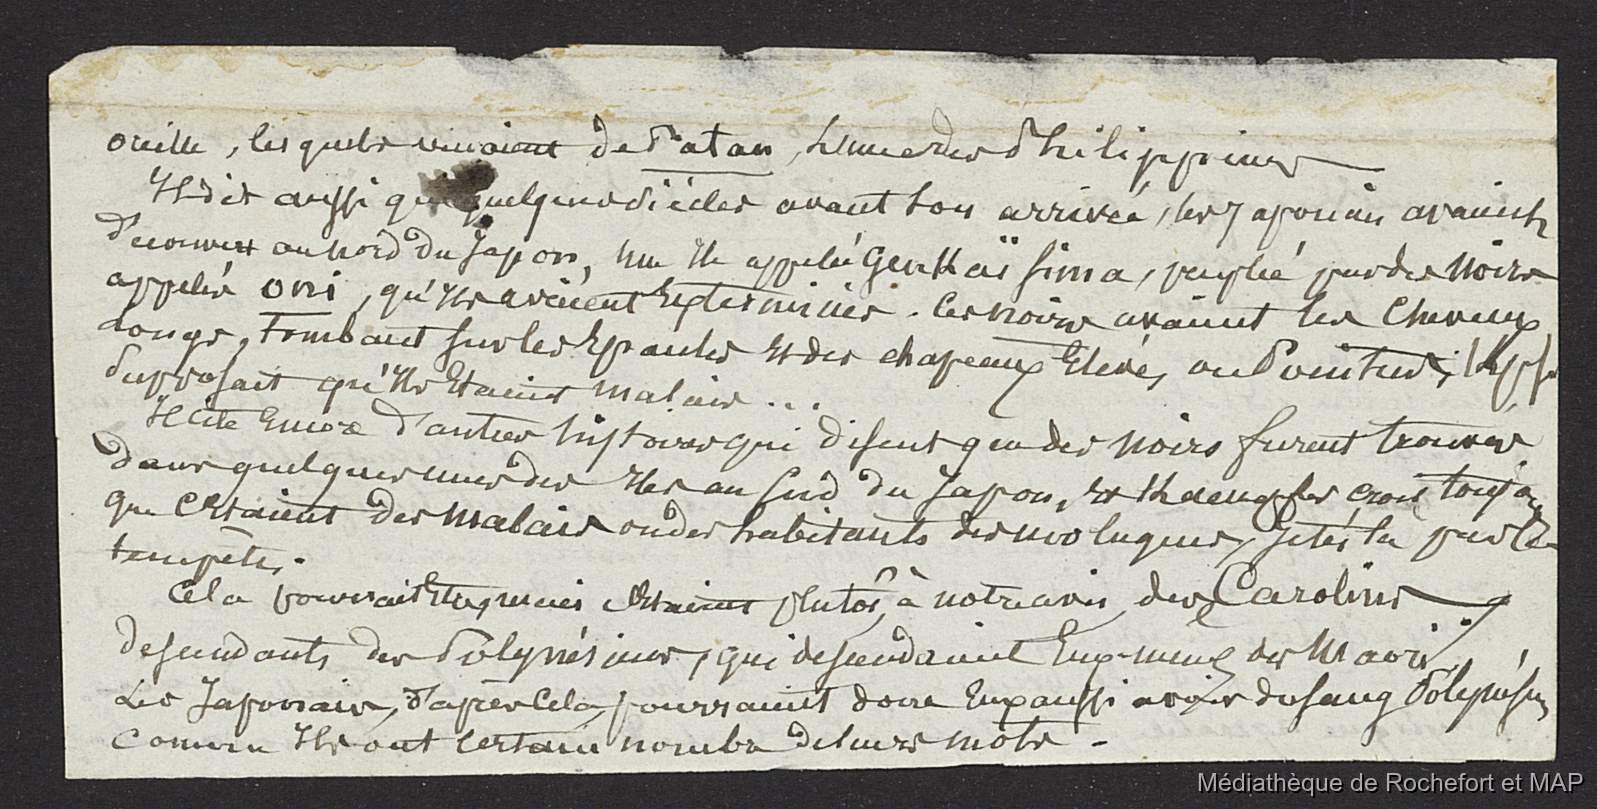 oreille, lesquels venaient de Patan, l'une des Philippines
Il dit aussi que quelques siècles avant son arrivée, les Japonais avaient
découvert au nord du Japon, une île appelée Genkaïsima, peuplée par des Noirs
appelés oni, qu'ils avaient exterminés. Ces noirs avaient les cheveux
longs, tombant sur les épaules et des chapeaux élevés, ou Pointus,
supposait qu'ils étaient malais ...
Il cite encore d'autres histoires qui disent que des noirs furent trouvés
dans quelques unes des îles au sud du Japon, et Kaempfer croit toujours
que c'étaient des malais ou des habitants des moluques, jetés là par la
tempête.
Cela pourrait être, mais c'étaient plutôt, à notre avis, des Carolins
descendants des Polynésiens, qui descendaient eux-mêmes des Maori.
Les Japonais, d'après cela, pourraient donc eux aussi avoir du sang Polynésien
comme ils ont certain nombre de leurs mots -
Médiathèque de Rochefort et MAP